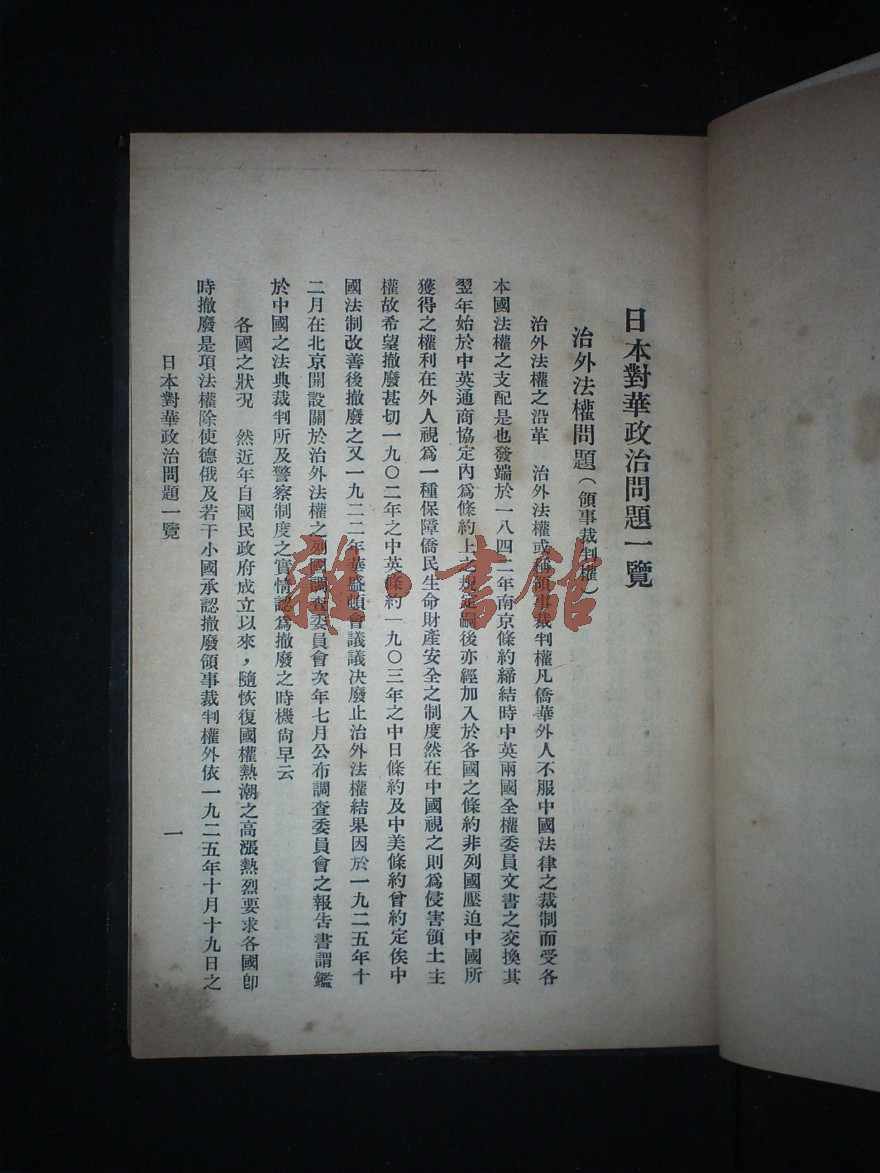 日本對華政治問題一覽
治外法權問題（領事裁判權）
治外法權之沿革　治外法權或稱領事裁判權凡僑華外人不服中國法律之裁制而受各
本國法權之支配是也發端於一八四二年南京條約締結時中英兩國全權委員文書之交換其
翌年始於中英通商協定內爲條約上之規定嗣後亦經加入於各國之條約非列國壓迫中國所
獲得之權利在外人視爲一種保障僑民生命財產安全之制度然在中國視之則爲侵害領土主
權故希望撤廢甚切一九〇二年之中英條約一九〇三年之中日條約及中美條約曾約定俟中
國法制改善後撤廢之又一九二二年華盛頓會議議決廢止治外法權結果因於一九二五年十
二月在北京開設關於治外法權之列國調查委員會次年七月公布調查委員會之報告書謂鑑
於中國之法典裁判所及警察制度之實情認爲撤廢之時機尙早云
各國之狀況　然近年自國民政府成立以來，隨恢復國權熱潮之高漲熱烈要求各國卽
時撤廢是項法權除使德俄及若干小國承認撤廢領事裁判權外依一九二五年十月十九日之
日本對華政治問題一覽
一
雜·書館